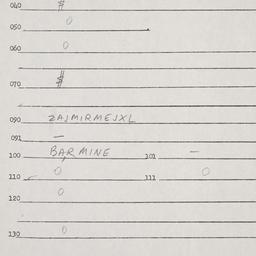 040 #
050 0
060 0
070 $
090 ZAJMIRMEJXL
091 —
100 BAR, MINE 101 —
110 0 111 0
120 0
130 0